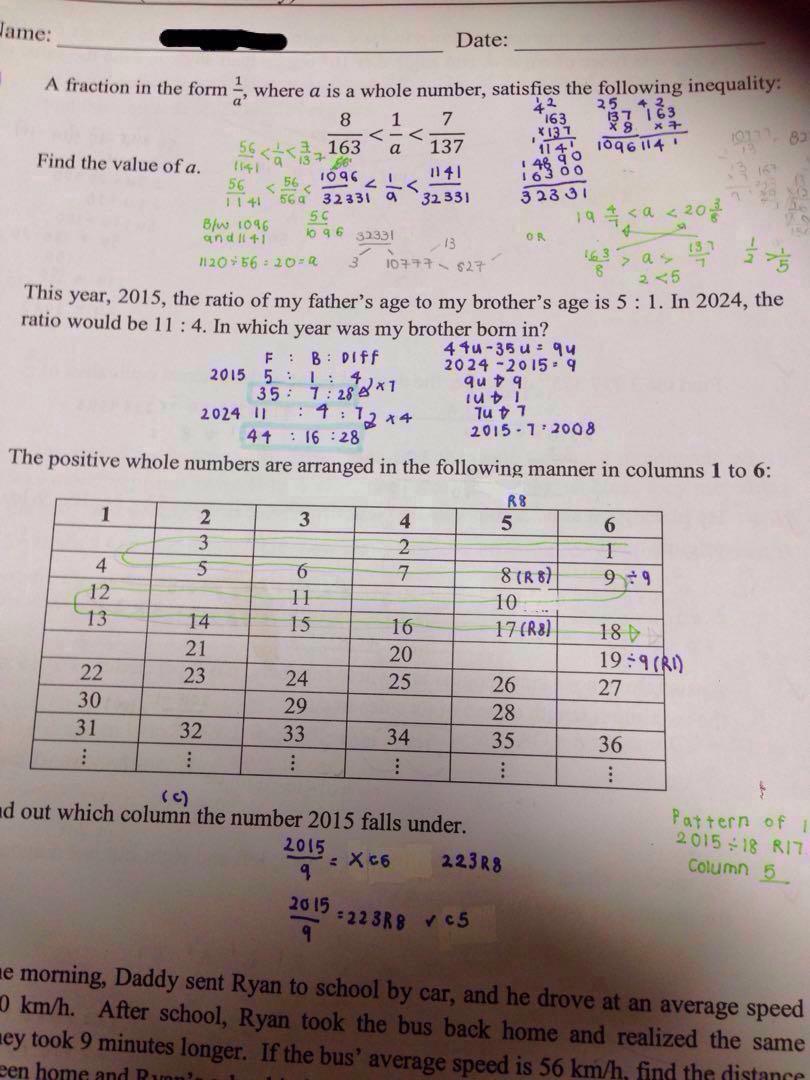 Name: Date:
A fraction in the form 1/a, where a is a whole number, satisfies the following inequality:
8/163 < 1/a < 7/137
Find the value of a.
56/1141 < 1/a <
56/1141 < 56/56a < 56/1096
1096/32331 < 1/a < 1141/32331
B/w 1096
and 1141
1120÷56 = 20 = a
32331
3 10777 - 827
13
163
x137
1141
4890
16300
32331
137 163
x8 x7
1096 1141
19 4/7 < a < 20 3/8
OR
163/8 > a > 137/7
2 < 5
1/2 > 1/5
This year, 2015, the ratio of my father's age to my brother's age is 5 : 1. In 2024, the
ratio would be 11 : 4. In which year was my brother born in?
F : B : Diff
2015 5 : 1 : 4
35 : 7 : 28 x7
2024 11 : 4 : 7 x4
44 : 16 : 28
44u-35u = 9u
2024-2015 = 9
9u → 9
1u → 1
7u → 7
2015-7 = 2008
The positive whole numbers are arranged in the following manner in columns 1 to 6:
R8
1 2 3 4 5 6
3 2 1
4 5 6 7 8 (R8) 9 ÷9
12 11 10
13 14 15 16 17 (R8) 18
21 20 19 ÷9 (R1)
22 23 24 25 26 27
30 29 28
31 32 33 34 35 36
⋮ ⋮ ⋮ ⋮ ⋮ ⋮
(c)
out which column the number 2015 falls under.
2015/9 = X C6 223R8
2015/9 = 223R8 ✓ C5
Pattern of
2015÷18 R17
Column 5
morning, Daddy sent Ryan to school by car, and he drove at an average speed
km/h. After school, Ryan took the bus back home and realized the same
took 9 minutes longer. If the bus' average speed is 56 km/h, find the distance
home and